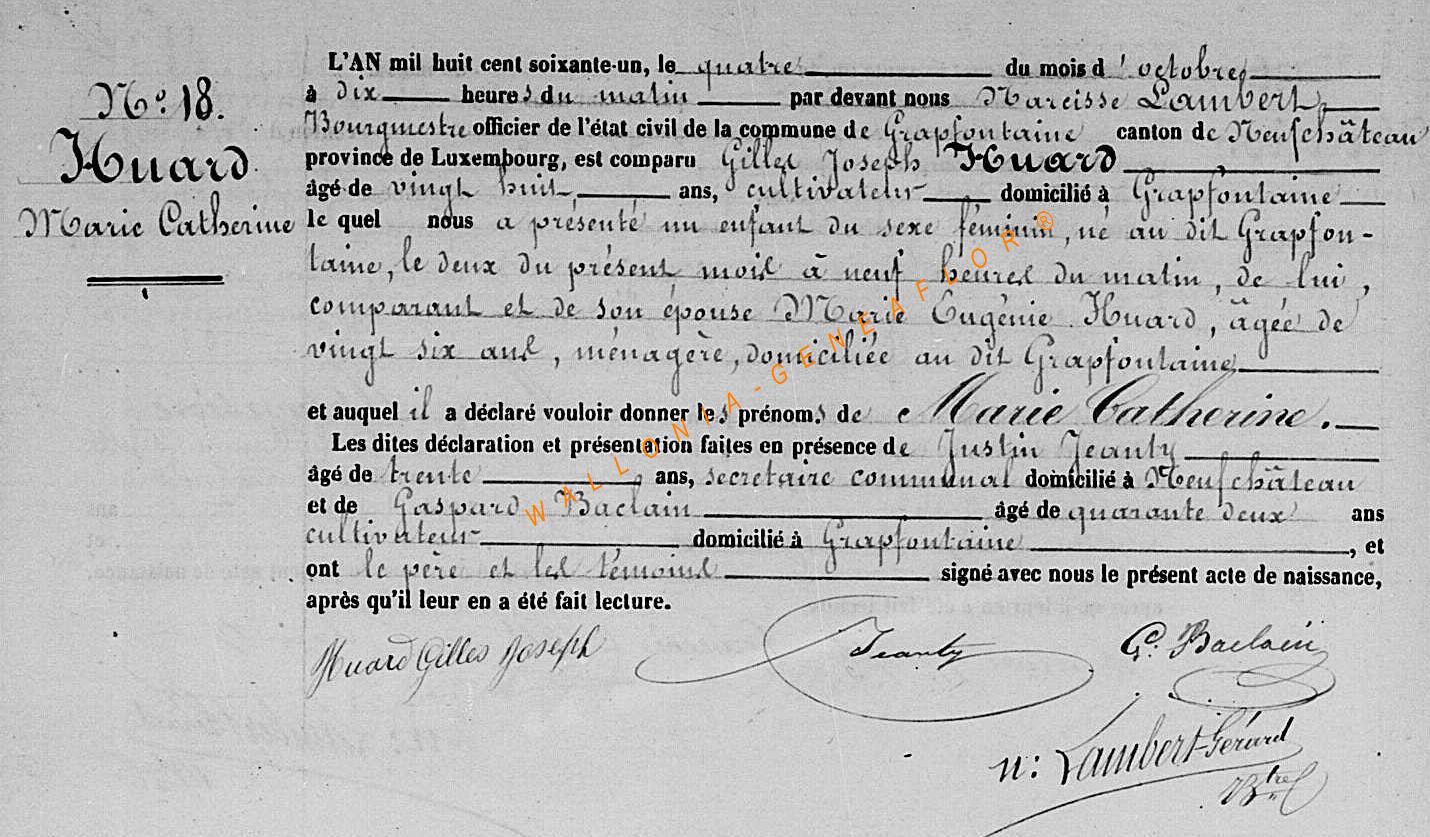 N° 18.
Huard
Marie Catherine
L'AN mil huit cent soixante-un, le quatre du mois d'octobre
à dix heures du matin par devant nous Narcisse Lambert,
Bourgmestre officier de l'état civil de la commune de Grapfontaine canton de Neufchâteau
province de Luxembourg, est comparu Gilles Joseph Huard
âgé de vingt huit ans, cultivateur domicilié à Grapfontaine
le quel nous a présenté un enfant du sexe féminin, né au dit Grapfon-
taine, le deux du présent mois à neuf heures du matin, de lui,
comparant et de son épouse Marie Eugènie Huard, âgée de
vingt six ans, ménagère, domiciliée au dit Grapfontaine
et auquel il a déclaré vouloir donner les prénoms de Marie Catherine.
Les dites déclaration et présentation faites en présence de Justin Jeanty
âgé de trente ans, secretaire communal domicilié à Neufchâteau
et de Gaspard Baclain âgé de quarante deux ans
cultivateur domicilié à Grapfontaine, et
ont le père et les témoins signé avec nous le présent acte de naissance,
après qu'il leur en a été fait lecture.
Huard Gilles Joseph Jeanty G. Baclain
n: Lambert-Gérard
Btre
WALLONIA-GENEAFLOR®